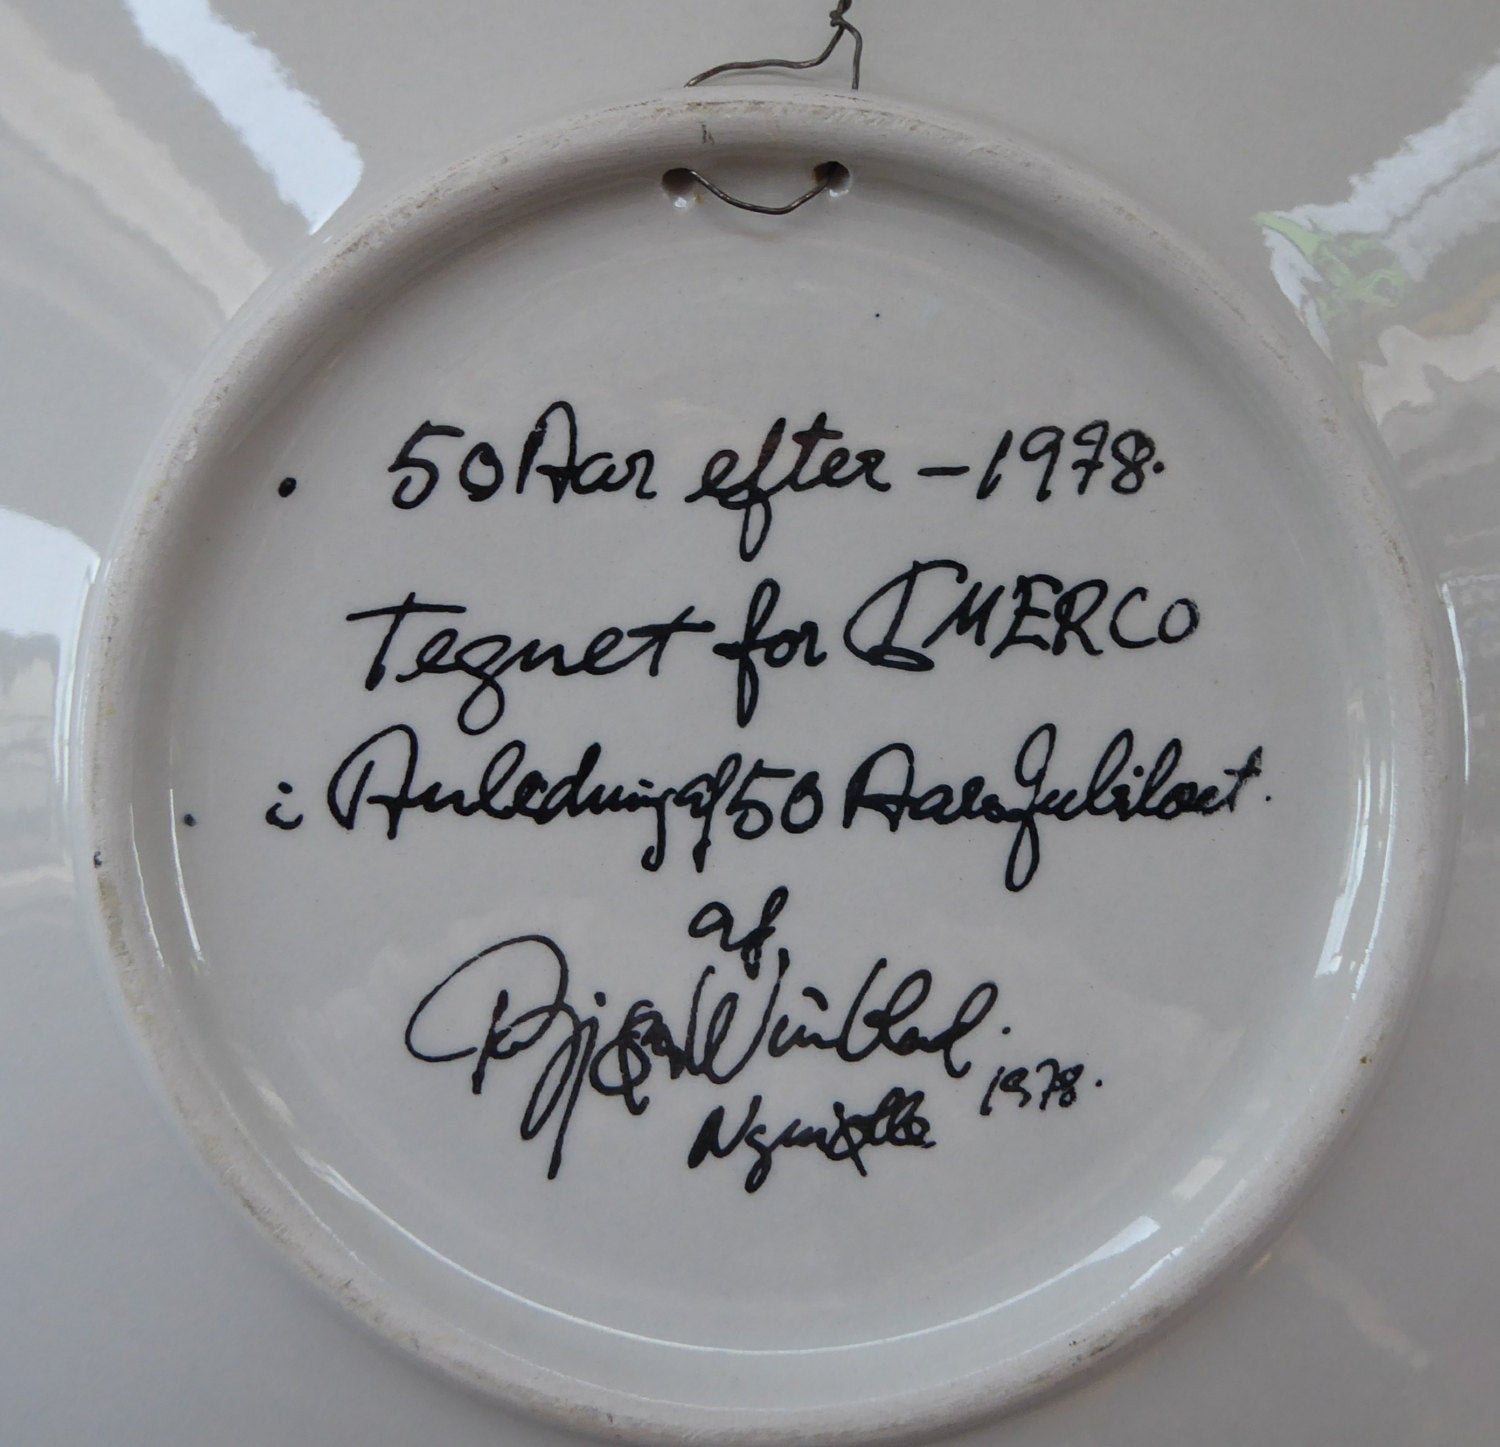 50 Aar efter – 1978.
Tegnet for IMERCO
i Anledning af 50 Aars Jubilæet.
af
Bjørn Wiinblad.
1978.